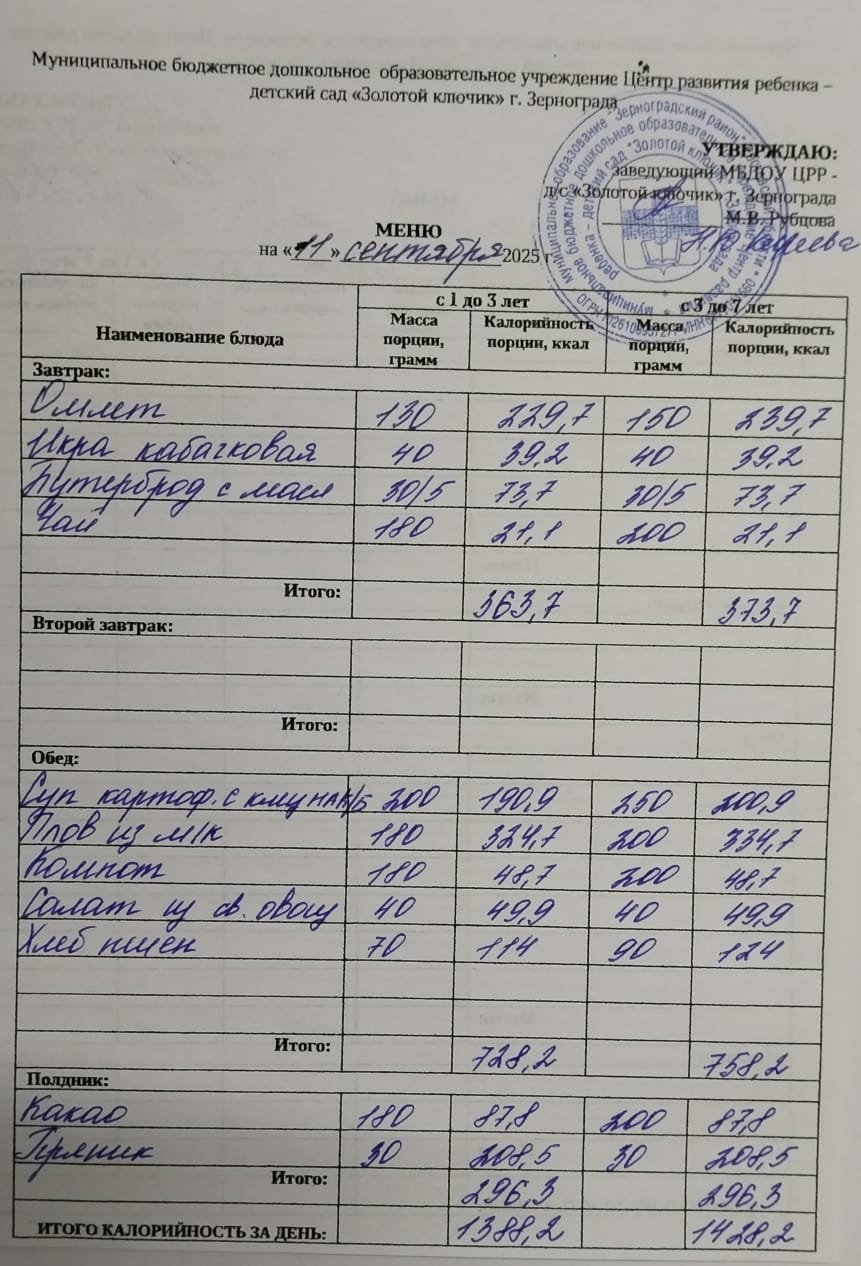 Муниципальное бюджетное дошкольное образовательное учреждение Центр развития ребенка –
детский сад «Золотой ключик» г. Зернограда
УТВЕРЖДАЮ:
заведующий МБДОУ ЦРР -
д/с «Золотой ключик» г. Зернограда
М.В. Рубцова
МЕНЮ
на «11» сентября 2025 г.
Наименование блюда
с 1 до 3 лет
с 3 до 7 лет
Масса порции, грамм
Калорийность порции, ккал
Масса порции, грамм
Калорийность порции, ккал
Завтрак:
Омлет 130 229,7 150 239,7
Икра кабачковая 40 39,2 40 39,2
Бутерброд с масл 30/5 73,7 30/5 73,7
Чай 180 21,1 200 21,1
Итого: 363,7 373,7
Второй завтрак:
Итого:
Обед:
Суп картоф. с клец на к/б 200 190,9 250 200,9
Плов из м/к 180 324,7 200 334,7
Компот 180 48,7 200 48,7
Салат из св. овощ 40 49,9 40 49,9
Хлеб пшен 70 114 90 124
Итого: 728,2 758,2
Полдник:
Какао 180 87,8 200 87,8
Пряник 30 208,5 30 208,5
Итого: 296,3 296,3
ИТОГО КАЛОРИЙНОСТЬ ЗА ДЕНЬ: 1388,2 1428,2